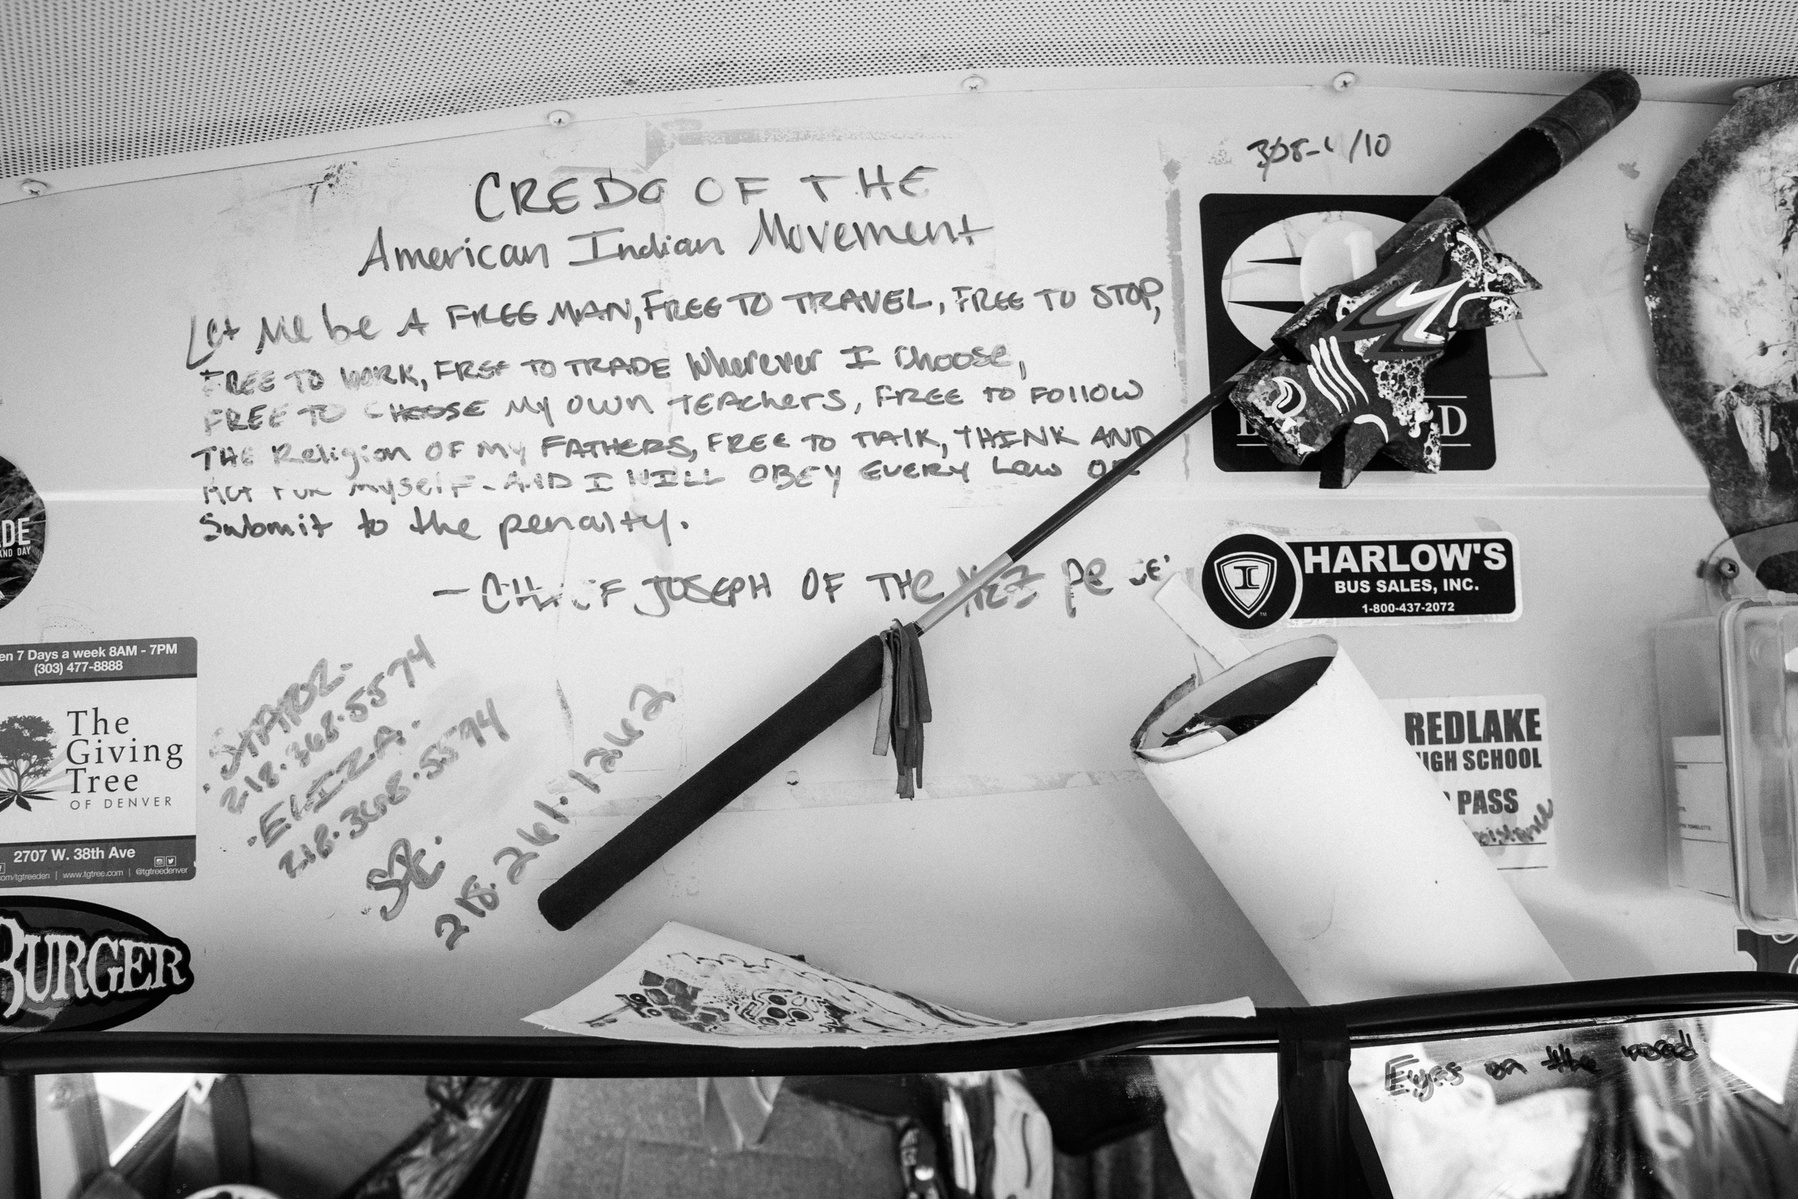 CREDO OF THE
American Indian Movement
Let Me be A FREE MAN, FREE TO TRAVEL, FREE TO STOP,
FREE TO WORK, FREE TO TRADE Wherever I Choose,
FREE TO CHOOSE My OWN TEAcherS, FREE to FOllOW
THE Religion OF my FATHERS, FREE to TAlK, THINK AND
Act FOR myself - AND I WILL OBEY EVERY Law OR
Submit to the penalty.
- CHIEF JOSEPH OF THE NEZ
218.368.5574
- ELIZA.
218.368.5594
218.261.1262
HARLOW'S
BUS SALES, INC.
1-800-437-2072
REDLAKE
HIGH SCHOOL
PASS
en 7 Days a week 8AM - 7PM
(303) 477-8888
The
Giving
Tree
OF DENVER
2707 W. 38th Ave
com/tgtreeden | www.tgtree.com | @tgtreedenver
DE
AND DAY
BURGER
Eyes on the road